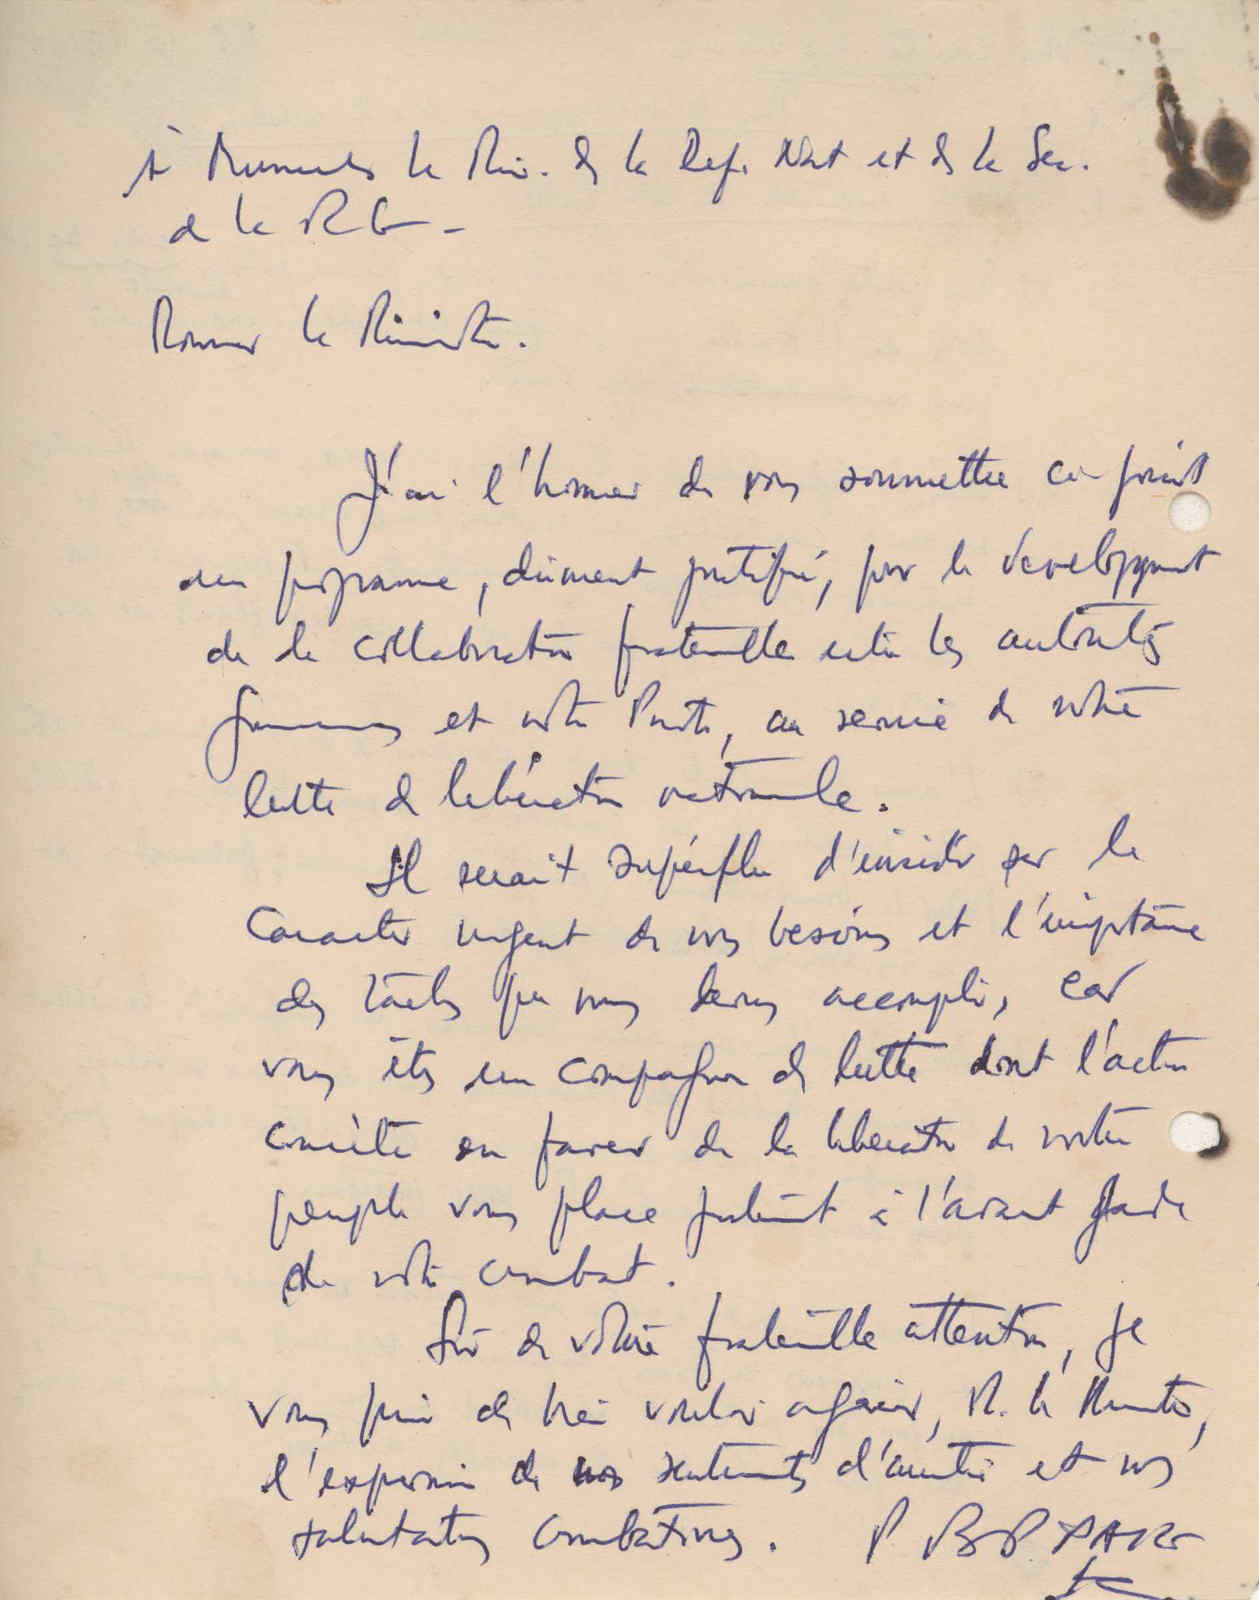 à Monsieur le Min. de la Def. Nat et de la Sec.
de la RG -
Monsieur le Ministre.
J'ai l'honneur de vous soumettre ci-joint
un programme, dûment justifié, pour le développement
de la collaboration fraternelle entre les autorités
guinéennes et notre Parti, au service de notre
lutte de libération nationale.
Il serait supérflu d'insister sur le
caractère urgent de nos besoins et l'importance
des tâches que nous devons accomplir, car
vous êtes un compagnon de lutte dont l'action
concrète en faveur de la libération de notre
peuple vous place justement à l'avant garde
de notre combat.
Sûr de votre fraternelle attention, je
vous prie de bien vouloir agréer, M. le Ministre,
l'expression de nos sentiments d'amitié et nos
salutations combatives. P BP PAIGC